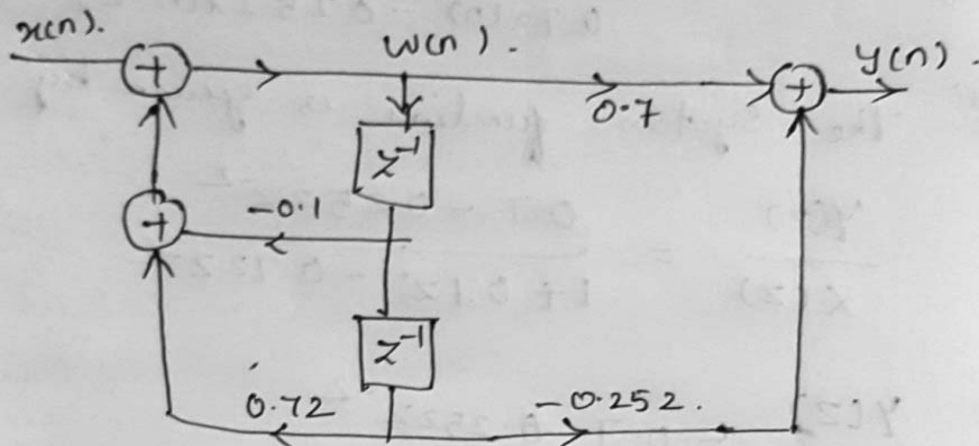 x(n).
w(n).
y(n).
+
+
0.7
z⁻¹
-0.1
+
z⁻¹
0.72
-0.252.